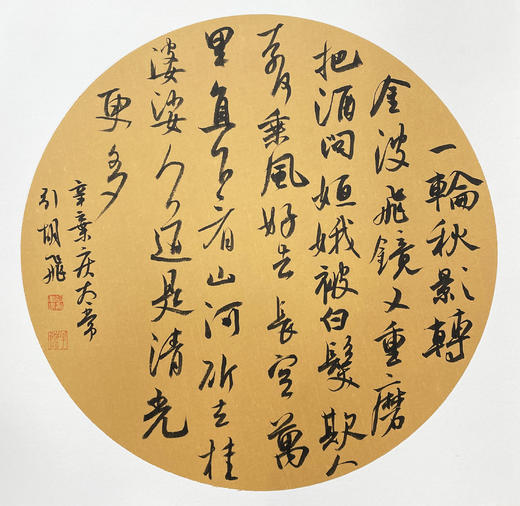 一輪秋影轉
金波飛鏡又重磨
把酒問姮娥被白髮欺人
奈何乘風好去長空萬
里直下看山河斫去桂
婆娑人道是清光
更多
辛棄疾太常
引胡飛